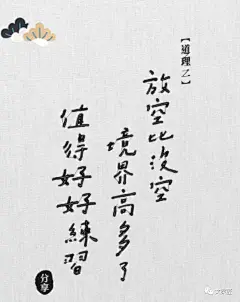 【道理 乙】
放空比沒空
境界高多了
值得好好練習
分享